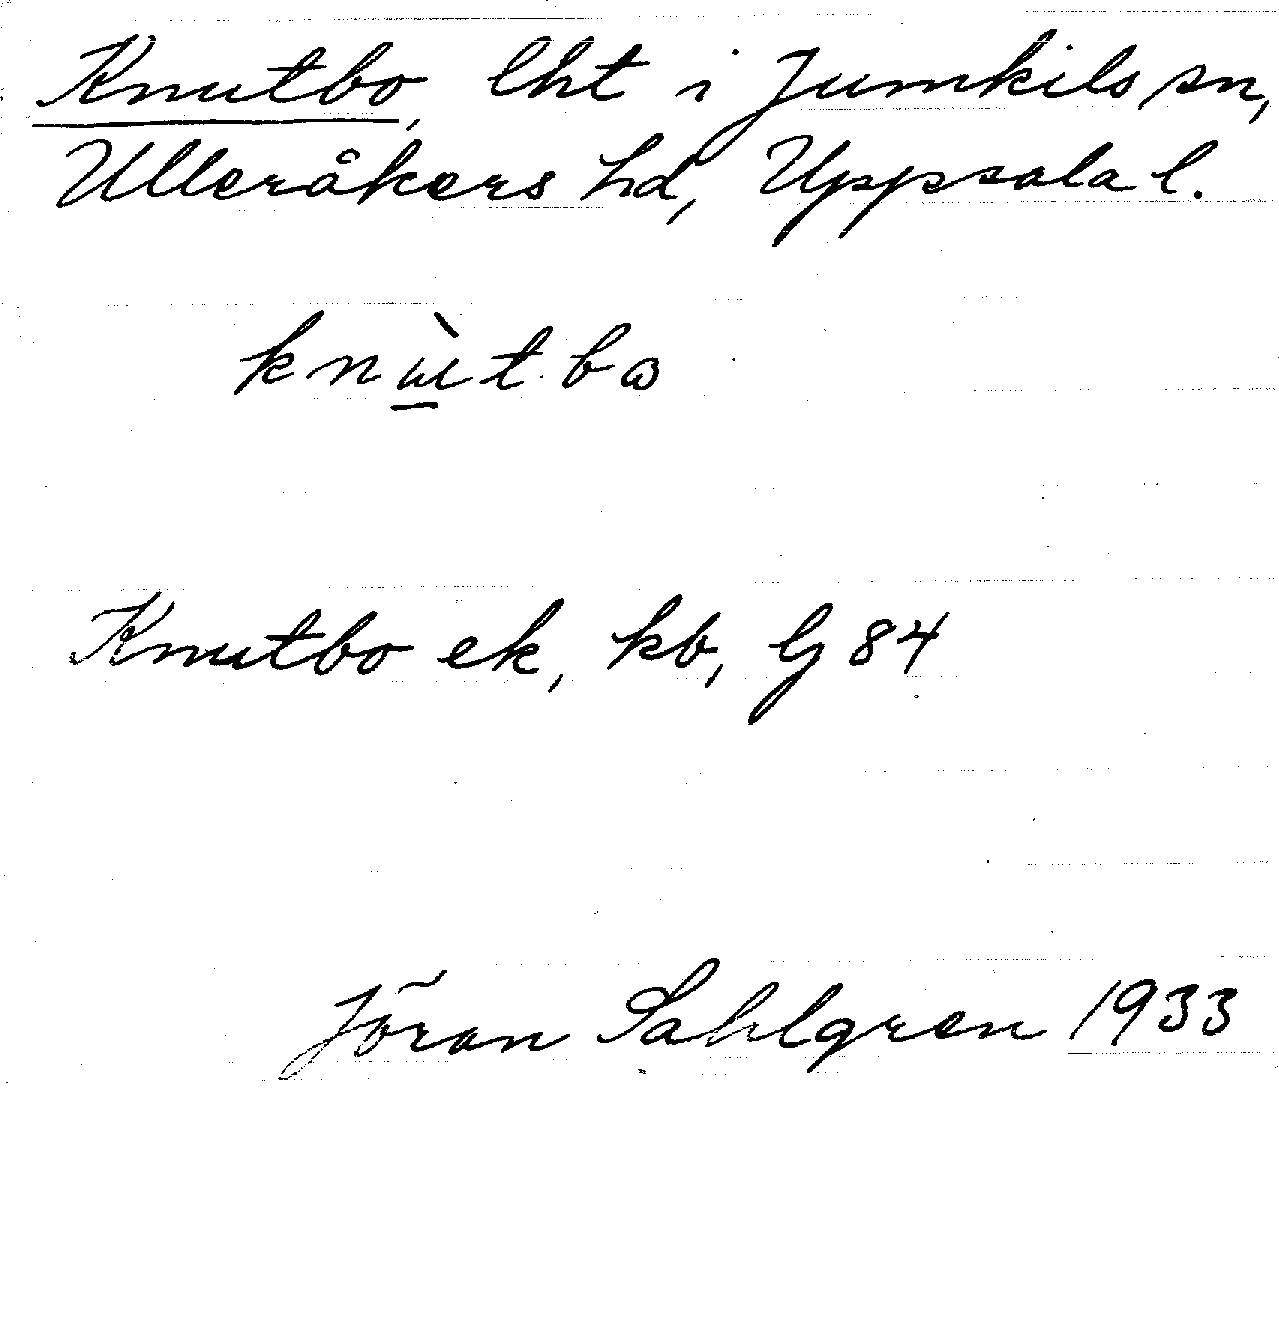 Knutbo, lht i Jumkils sn,
Ulleråkers hd, Uppsala l.
knɯ̱̀tbɷ
Knutbo ek, kb, Gj 84
Jöran Sahlgren 1933